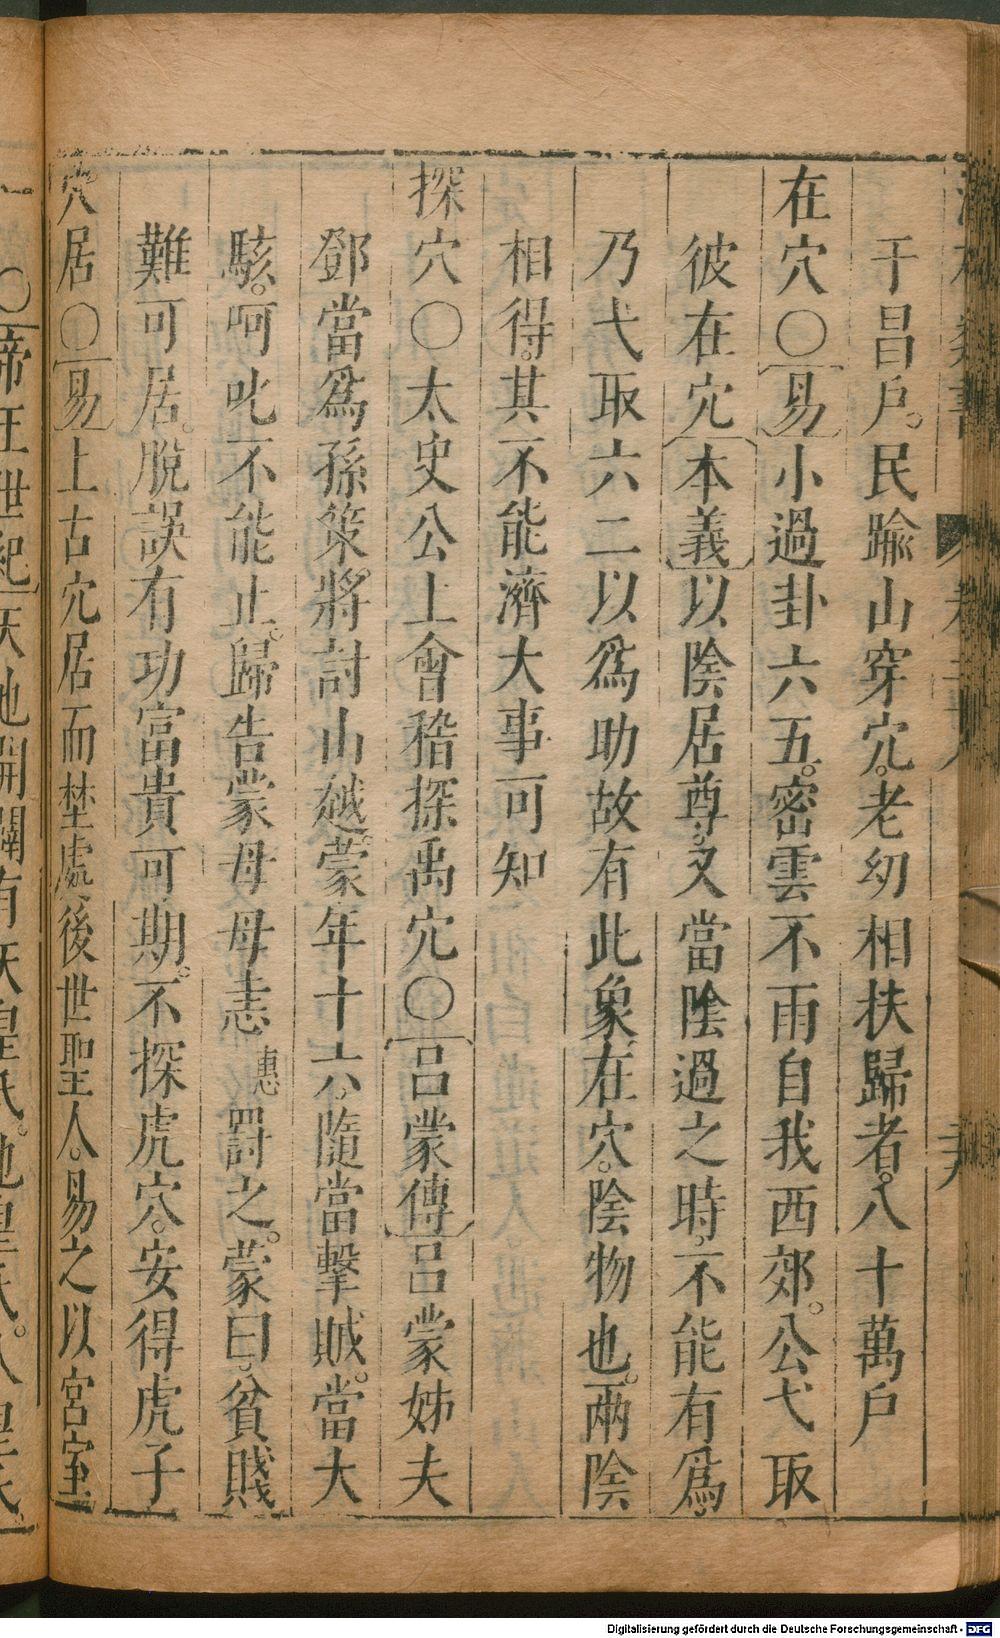 于昌戶。民踰山穿穴。老幼相扶歸者。八十萬戶
在穴〇易小過卦六五。密雲不雨自我西郊。公弋取
彼在穴本義以陰居尊。又當陰過之時。不能有爲。
乃弋取六二以爲助故有此象在穴。陰物也。兩陰
相得。其不能濟大事可知
探穴〇太史公上會稽探禹穴〇呂蒙傳呂蒙姊夫
鄧當爲孫策。將討山越。蒙年十六。隨當擊賊。當大
駭。呵叱不能止。歸告蒙母母恚惠罰之。蒙曰。貧賤
難可居。脫誤有功富貴可期。不探虎穴。安得虎子
穴居〇易上古穴居而埜處。後世聖人。易之以宮室
〇帝王世紀天地開闢有天皇氏。地皇氏。人皇氏
Digitalisierung gefördert durch die Deutsche Forschungsgemeinschaft - DFG